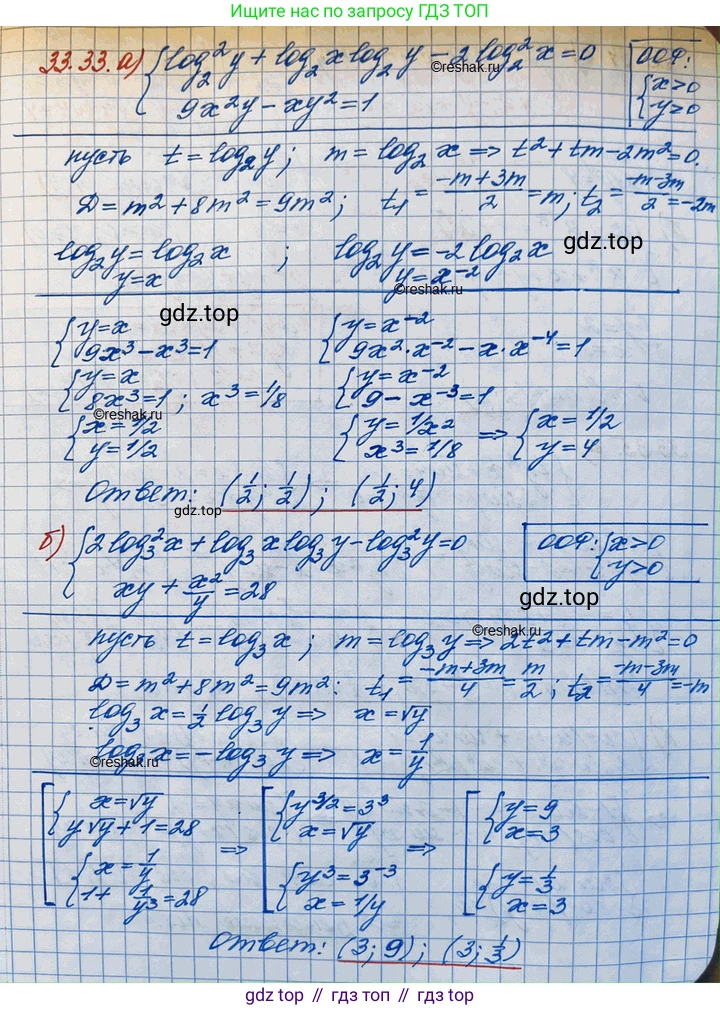 Ищите нас по запросу ГДЗ ТОП
33.33. а) { log₂²y + log₂x log₂y − 2log₂²x = 0
9x²y − xy² = 1
ООФ: { x>0
y>0
©reshak.ru
пусть t = log₂y; m = log₂x ⇒ t² + tm − 2m² = 0.
D = m² + 8m² = 9m²; t₁ = (−m+3m)/2 = m; t₂ = (−m−3m)/2 = −2m
log₂y = log₂x ; log₂y = −2log₂x
gdz.top
y = x y = x⁻²
©reshak.ru
gdz.top
{ y = x { y = x⁻²
9x³ − x³ = 1 9x²·x⁻² − x·x⁻⁴ = 1
{ y = x { y = x⁻²
8x³ = 1; x³ = 1/8 9 − x⁻³ = 1
©reshak.ru
{ x = 1/2 { y = 1/x² ⇒ { x = 1/2
y = 1/2 x³ = 1/8 y = 4
Ответ: (1/2; 1/2); (1/2; 4)
gdz.top
б) { 2log₃²x + log₃x log₃y − log₃²y = 0
xy + x²/y = 28
ООФ: { x>0
y>0
gdz.top
©reshak.ru
пусть t = log₃x; m = log₃y ⇒ 2t² + tm − m² = 0
D = m² + 8m² = 9m²: t₁ = (−m+3m)/4 = m/2; t₂ = (−m−3m)/4 = −m
log₃x = 1/2 log₃y ⇒ x = √y
log₂x = −log₃y ⇒ x = 1/y
©reshak.ru
[ { x = √y ⇒ [ { y^(3/2) = 3³ ⇒ [ { y = 9
y√y + 1 = 28 x = √y x = 3
{ x = 1/y { y³ = 3⁻³ { y = 1/3
1 + 1/y³ = 28 x = 1/y x = 3
Ответ: (3; 9); (3; 1/3)
gdz top // гдз топ // gdz top